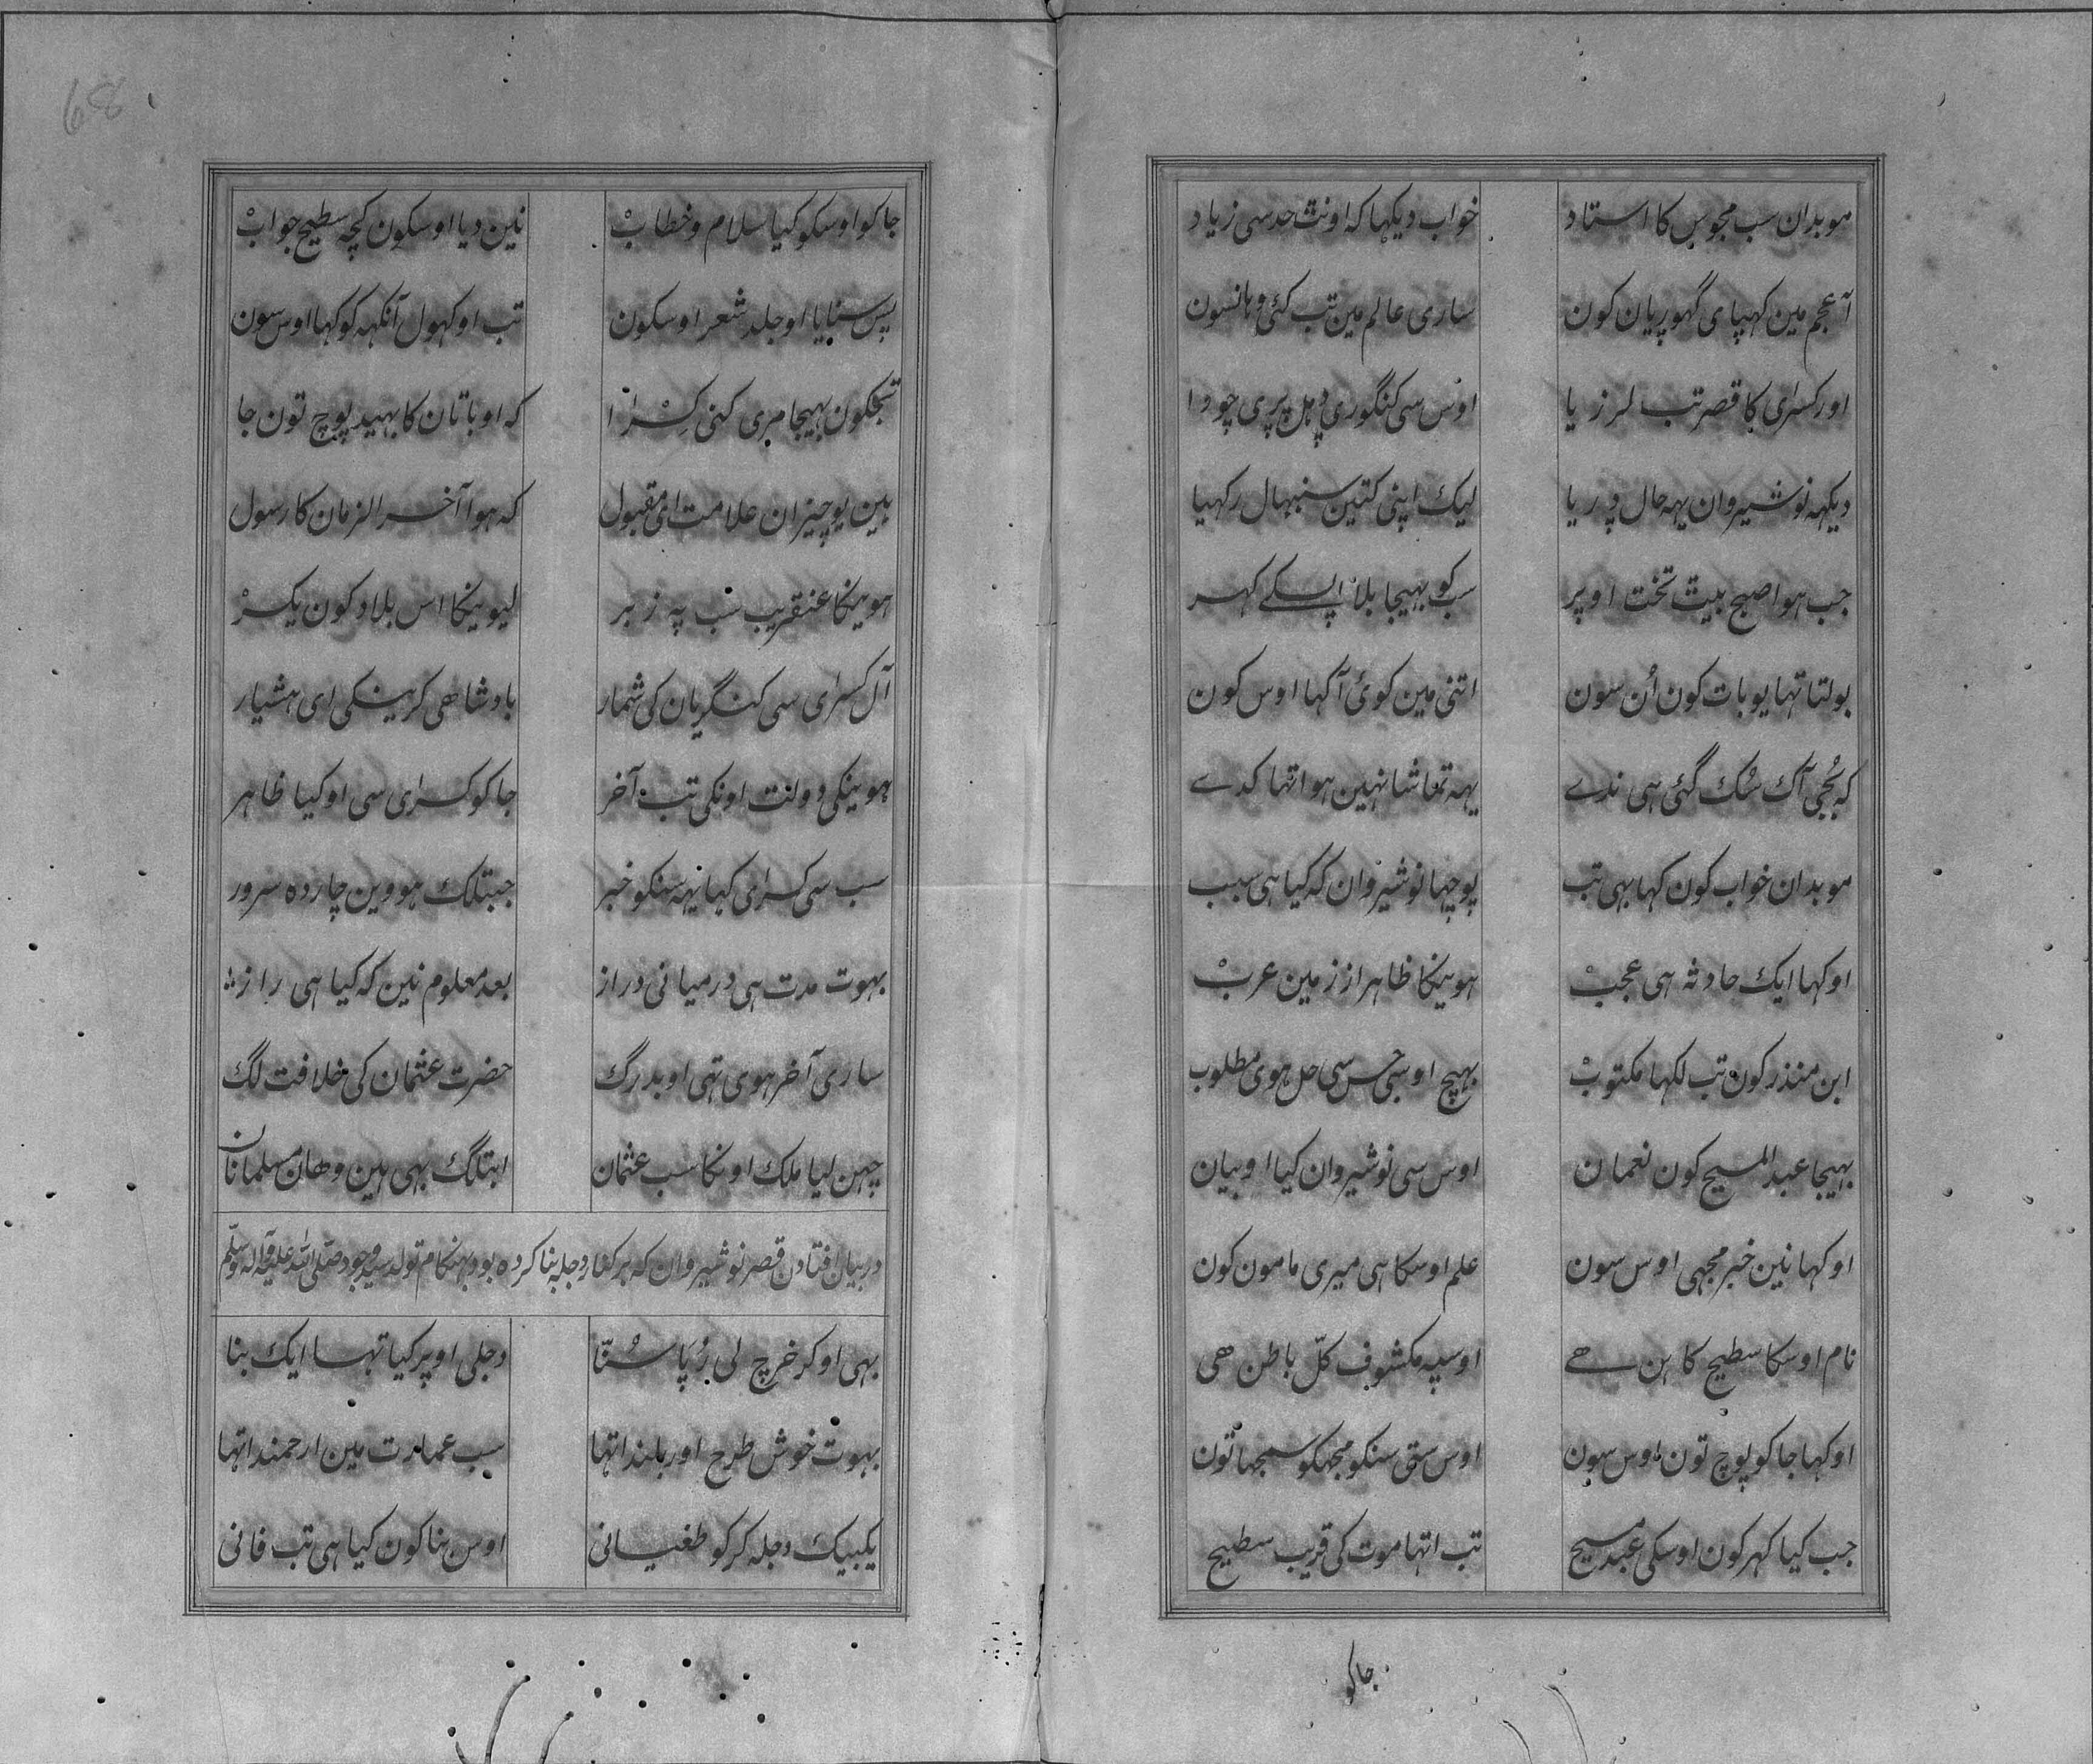 موبدان سب مجوس کا استاد خواب دیکہا کہ اونٹ حد سی زیاد
آ عجم مین کہپای گہوریان کون ساری عالم مین تب کئی وہانسون
اور کسرٰی کا قصر تب لرزیا اوس سی کنگوری دہل پری چودا
دیکہہ نوشیروان یہہ حال دریا لیک اپنی کتین سنبہال رکہیا
جب ہوا صبح بیٹ تخت اوپر سب کو بہیجا بلا اپسکے کہر
بولتا تہا یو بات کون اُن سون اتنی مین کوئ آ کہا اوس کون
کہ بُجی آک سُک گئی ہی ندے یہہ تماشا نہین ہوا تہا کدے
موبدان خواب کون کہا بہی تب پوچہا نوشیروان کہ کیا ہی سبب
او کہا ایک حادثہ ہی عجب ہوینکا ظاہر از زمین عرب
ابن منذر کون تب لکہا مکتوب بہیج اوسی جس سی حل ہوی مطلوب
بہیجا عبد المسیح کون نعمان اوس سی نوشیروان کیا او بیان
او کہا نین خبر مجہی اوس سون علم اوسکا ہی میری مامون کون
نام اوسکا سطیح کاہن ہے اوسپہ مکشوف کلّ باطن ھی
او کہا جا کو پوچ تون اوس سون اوس ستی سنکو مجہکو سمجہا تون
جب کیا کہر کون اوسکی عبد مسیح تب اتہا موت کی قریب سطیح
جاکو
68
جاکو اوسکو کیا سلام و خطاب نین دیا اوسکون کچہ سطیح جواب
پس سنایا او جلد شعر اوسکون تب او کہول آنکہہ کو کہا اوس سون
تجکون بہیجا مری کنی کِسْرٰا کہ او باتان کا بہید پوچ تون جا
ہین یو چیزان علامت ای مقبول کہ ہوا آخر الزمان کا رسول
ہوینکا عنقریب سب پہ زبر لیوینکا اس بلاد کون یکسر
آل کسرٰی سی کنگریان کی شمار بادشاھی کرینکی ای ہشیار
ہوینکی دولت اونکی تب آخر جا کو کسرٰی سی او کیا ظاہر
سب سی کسرٰی کہا یہہ سنکو خبر جبتلک ہووین چاردہ سرور
بہوت مدت ہی درمیانی دراز بعد معلوم نین کہ کیا ہی راز
ساری آخر ہوی تہی او بدرگ حضرت عثمان کی خلافت لگ
چہن لیا ملک اونکا سب عثمان ابتلگ بہی ہین وھان مسلمانان
در بیان فتادن قصر نوشیروان کہ بر کنار دجلہ بنا کردہ بود بہنکام تولد سید وجود صلّی اللہ علیہ وآلہ وسلّم
بہی او کر خرچ لی رُپا سُنّا دجلی اوپر کیا تہا ایک بنا
بہوت خوش طرح اور بلند اتہا سب عمارت مین ارجمند اتہا
یکبیک دجلہ کر کو طغیانی اوس بنا کون کیا ہی تب فانی